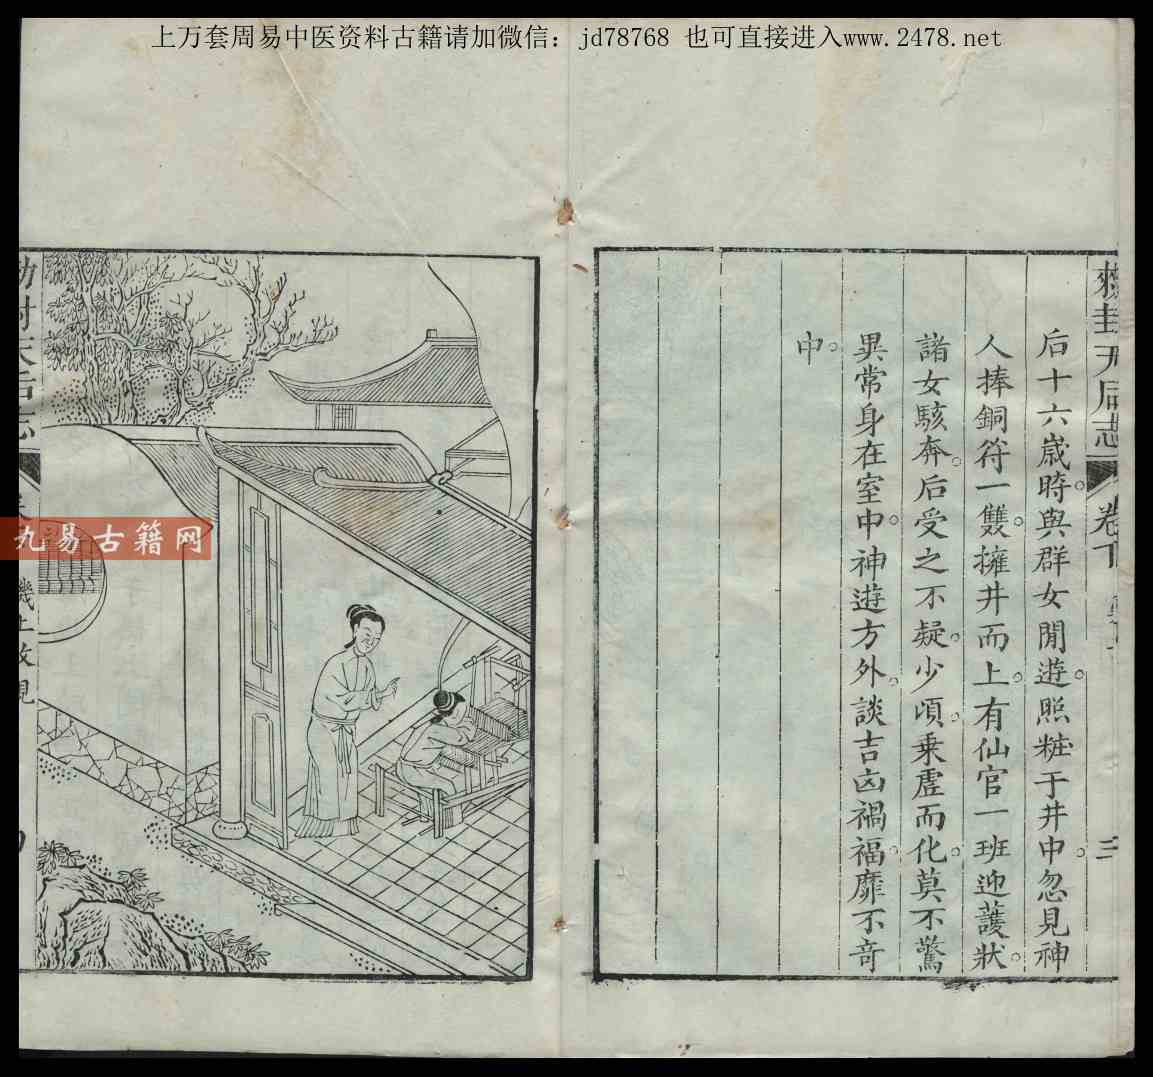 上万套周易中医资料古籍请加微信：jd78768 也可直接进入www.2478.net
敕封天后志
卷下
三
后十六歲時。與群女閒遊。照粧于井中。忽見神
人捧銅符一雙。擁井而上。有仙官一班迎護狀。
諸女駭奔。后受之不疑。少頃。乘虛而化。莫不驚
異。常身在室中。神遊方外。談吉凶禍福。靡不奇
中。
敕封天后志
機上救親
九易古籍网